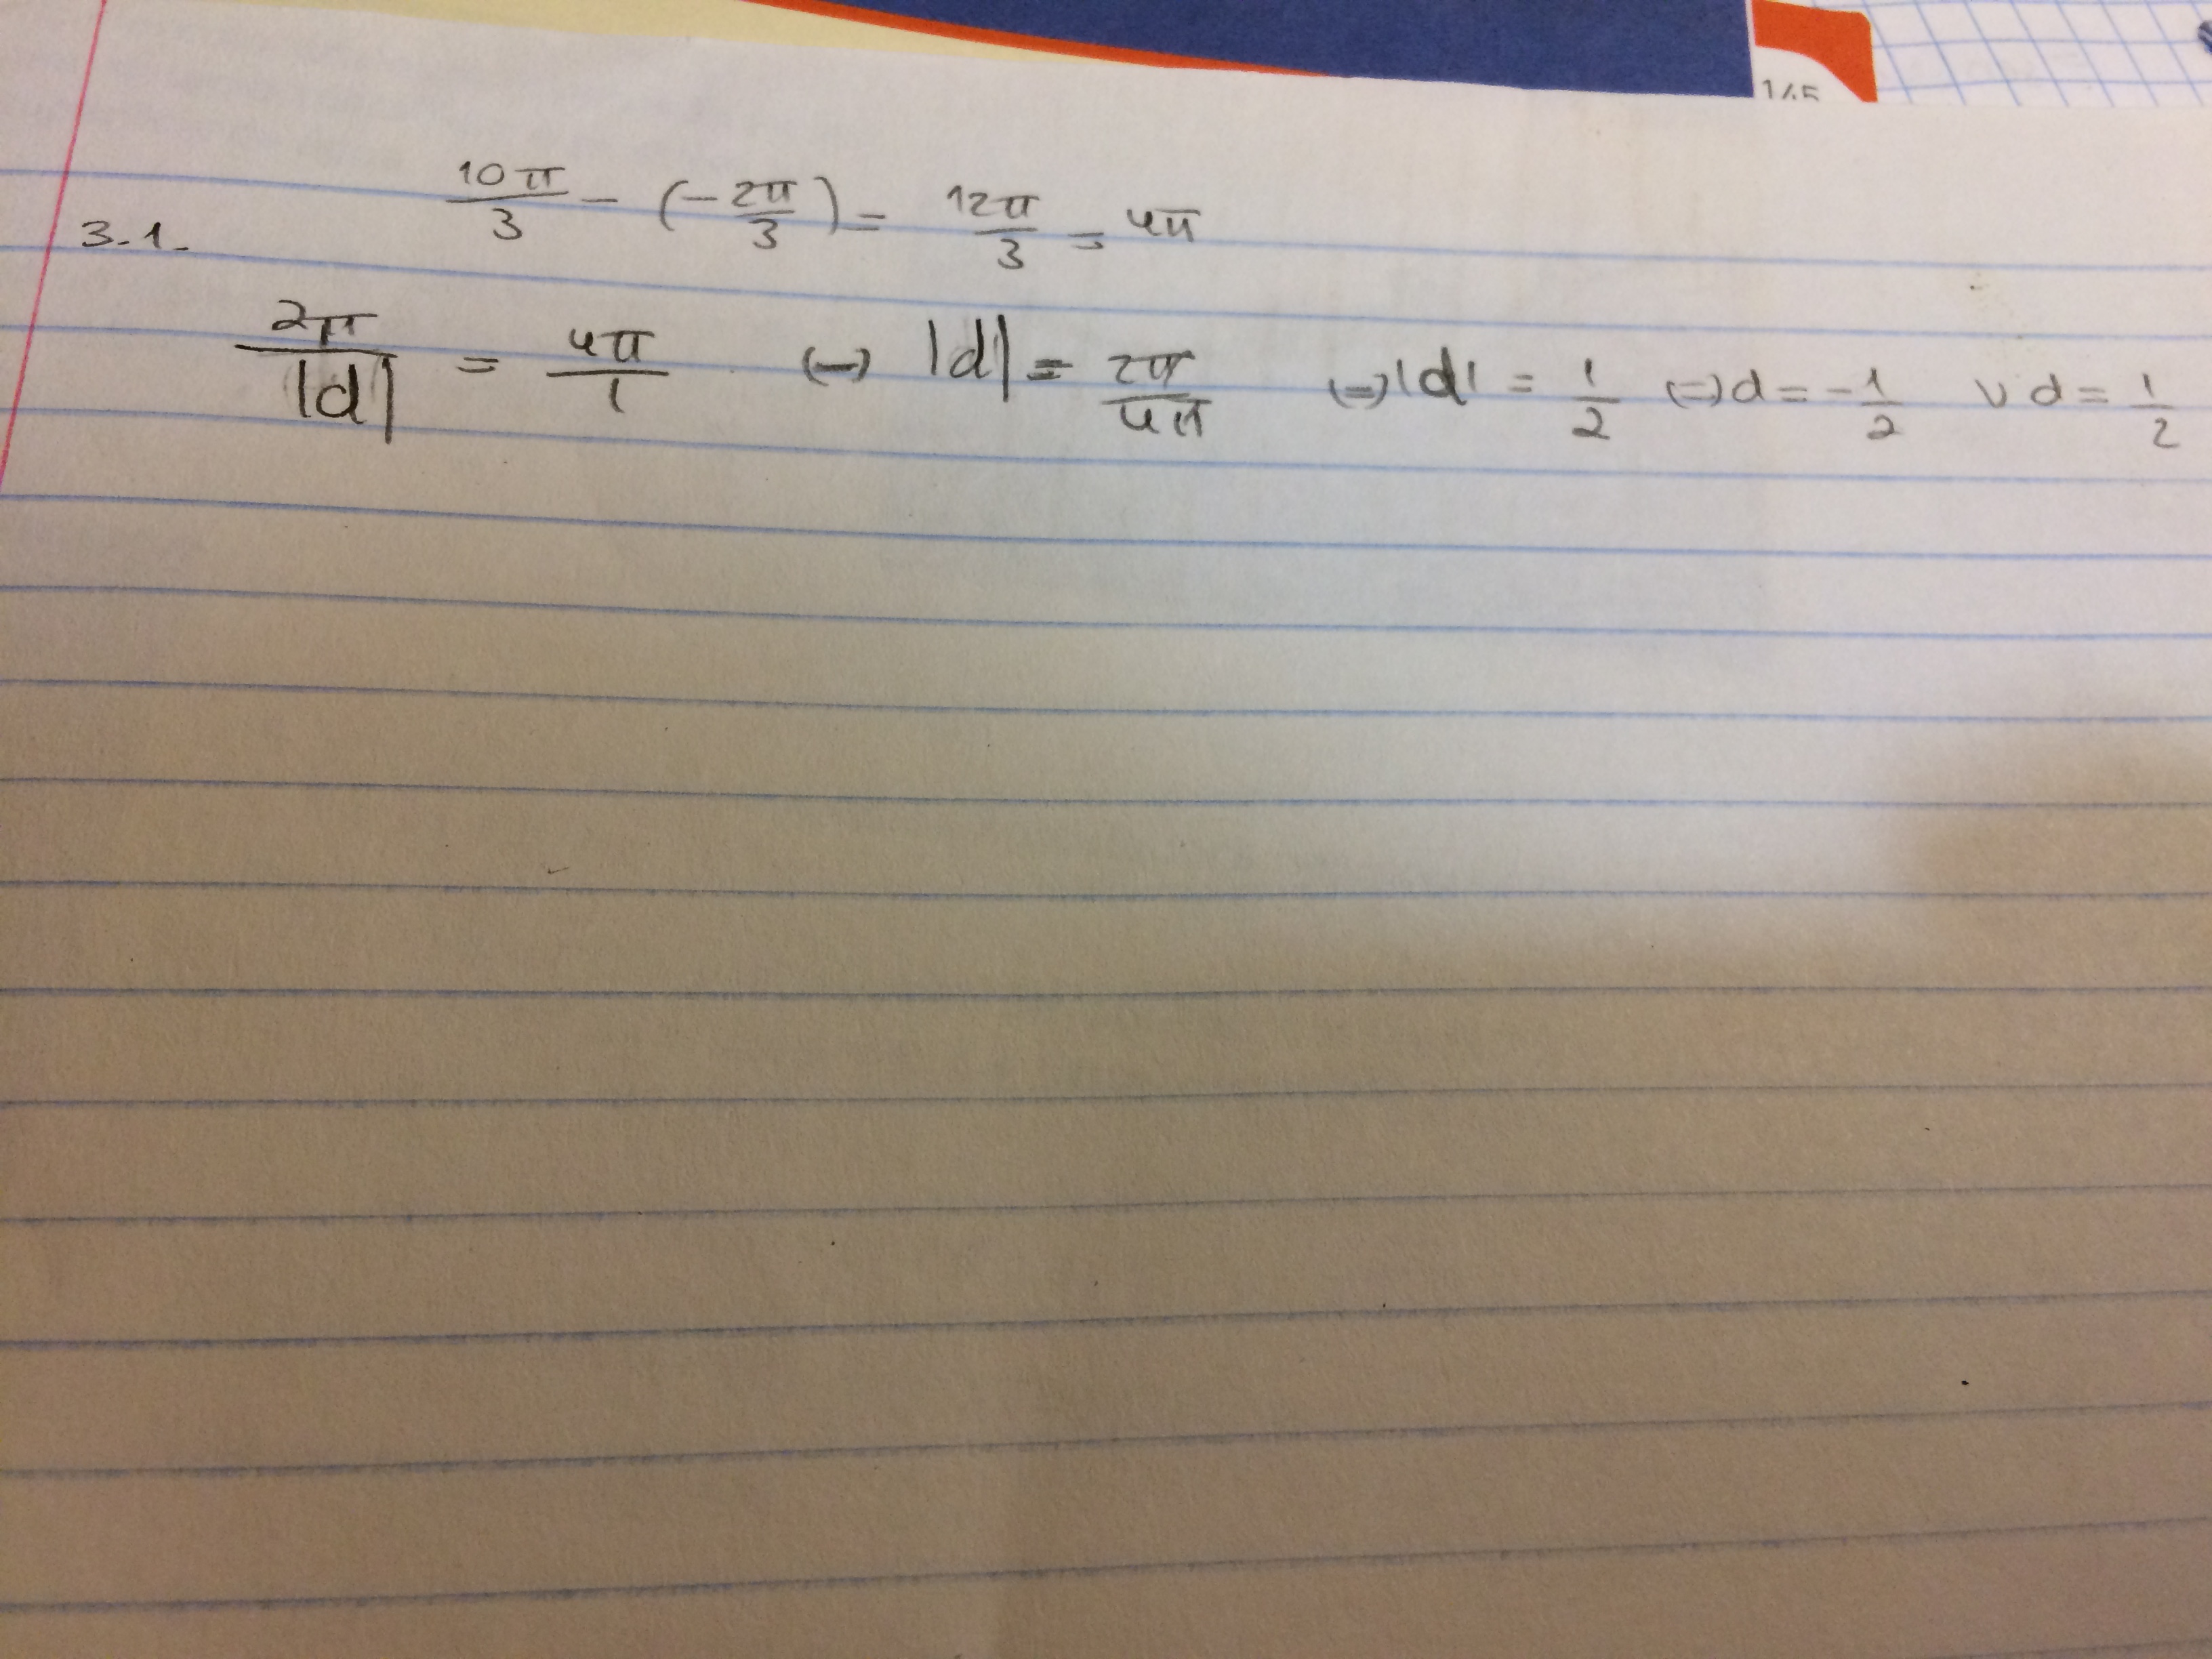 145
3.1. 10π/3 - (-2π/3) = 12π/3 = 4π
2π/|d| = 4π/1 (=) |d| = 2π/4π (=) |d| = 1/2 (=) d = -1/2 ∨ d = 1/2